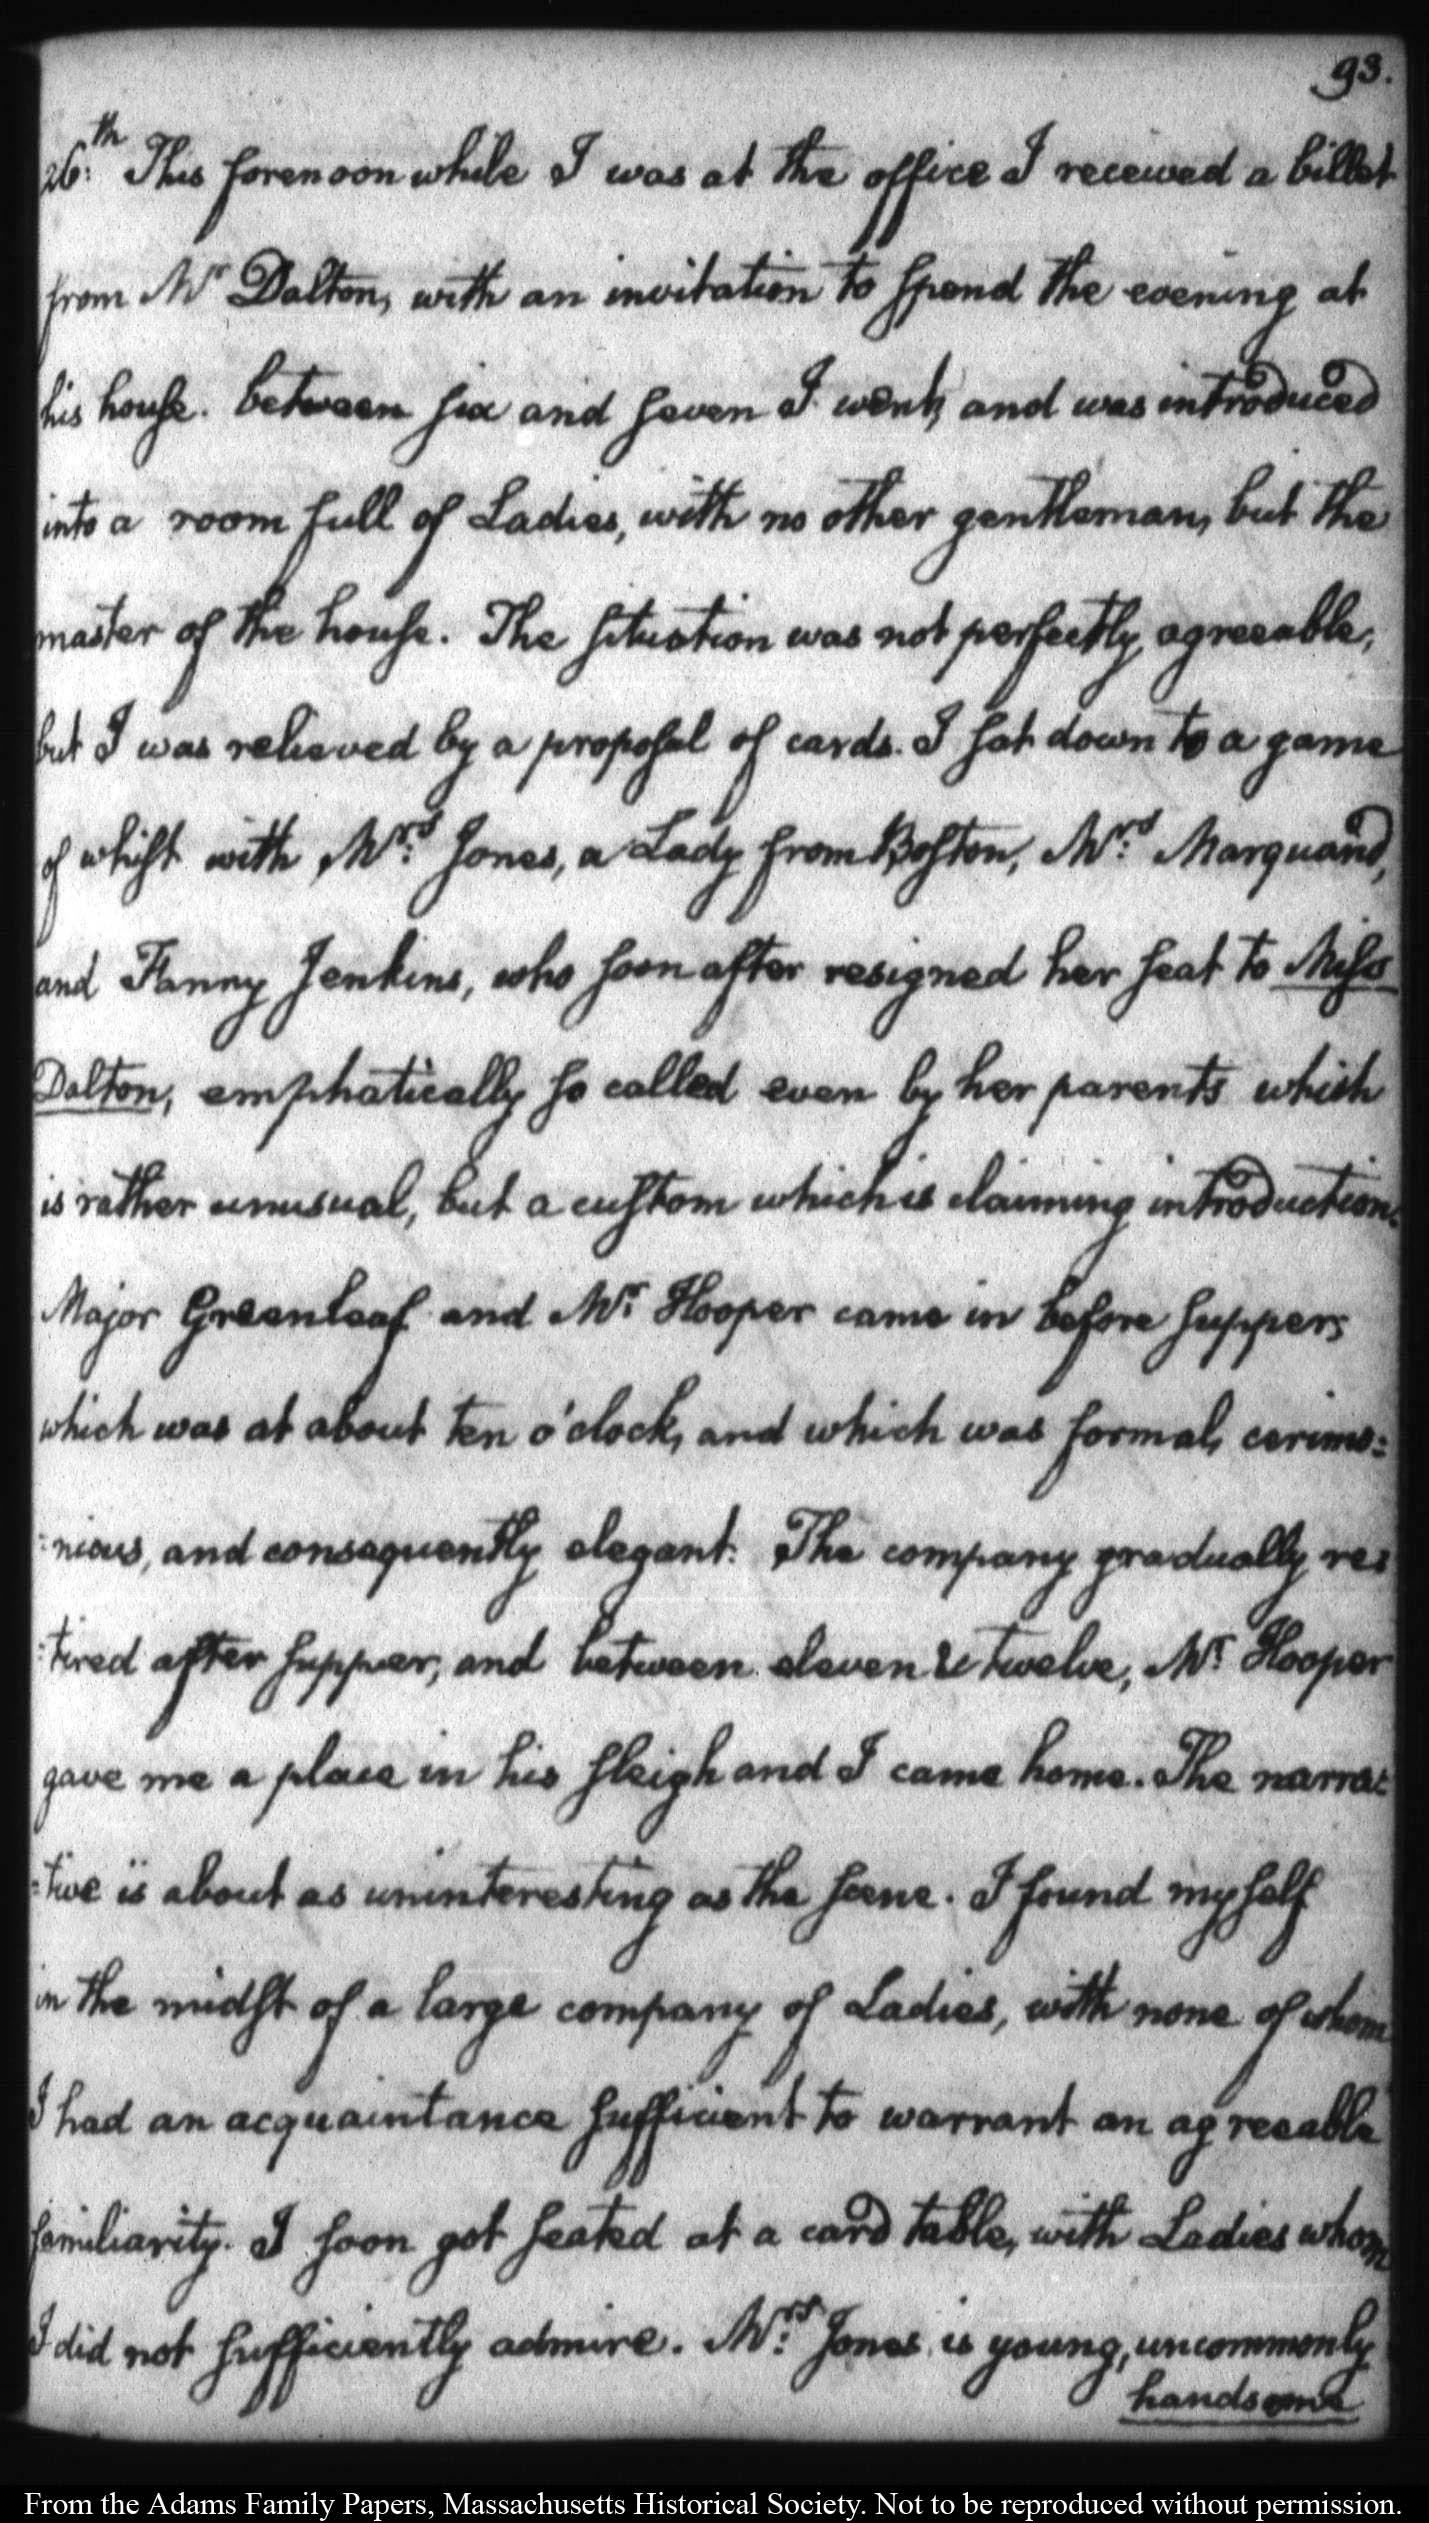 93.
26:th This forenoon while I was at the office I received a billet
from Mr Dalton, with an invitation to spend the evening at
his house. between six and seven I went, and was introduced
into a room full of Ladies, with no other gentleman, but the
master of the house. The situation was not perfectly agreeable,
but I was relieved by a proposal of cards. I sat down to a game
of whist with Mrs: Jones, a Lady from Boston, Mrs: Marquand,
and Fanny Jenkins, who soon after resigned her seat to Miss
Dalton, emphatically so called even by her parents which
is rather unusual, but a custom which is claiming introduction.
Major Greenleaf and Mr: Hooper came in before supper,
which was at about ten o'clock, and which was formal, cerimo:
:nious, and consequently elegant. The company gradually re:
:tired after supper, and between eleven & twelve, Mr: Hooper
gave me a place in his sleigh and I came home. The narra:
:tive is about as uninteresting as the scene. I found myself
in the midst of a large company of Ladies, with none of whom
I had an acquaintance sufficient to warrant an agreeable
familiarity. I soon got seated at a card table, with Ladies whom
I did not sufficiently admire. Mrs: Jones is young, uncommonly
handsome
From the Adams Family Papers, Massachusetts Historical Society. Not to be reproduced without permission.